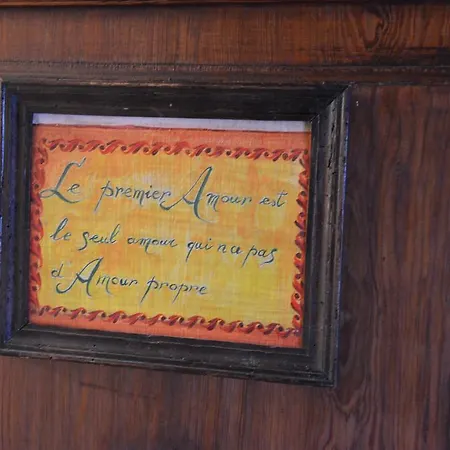 Le premier Amour est
le seul amour qui n'a pas
d'Amour propre